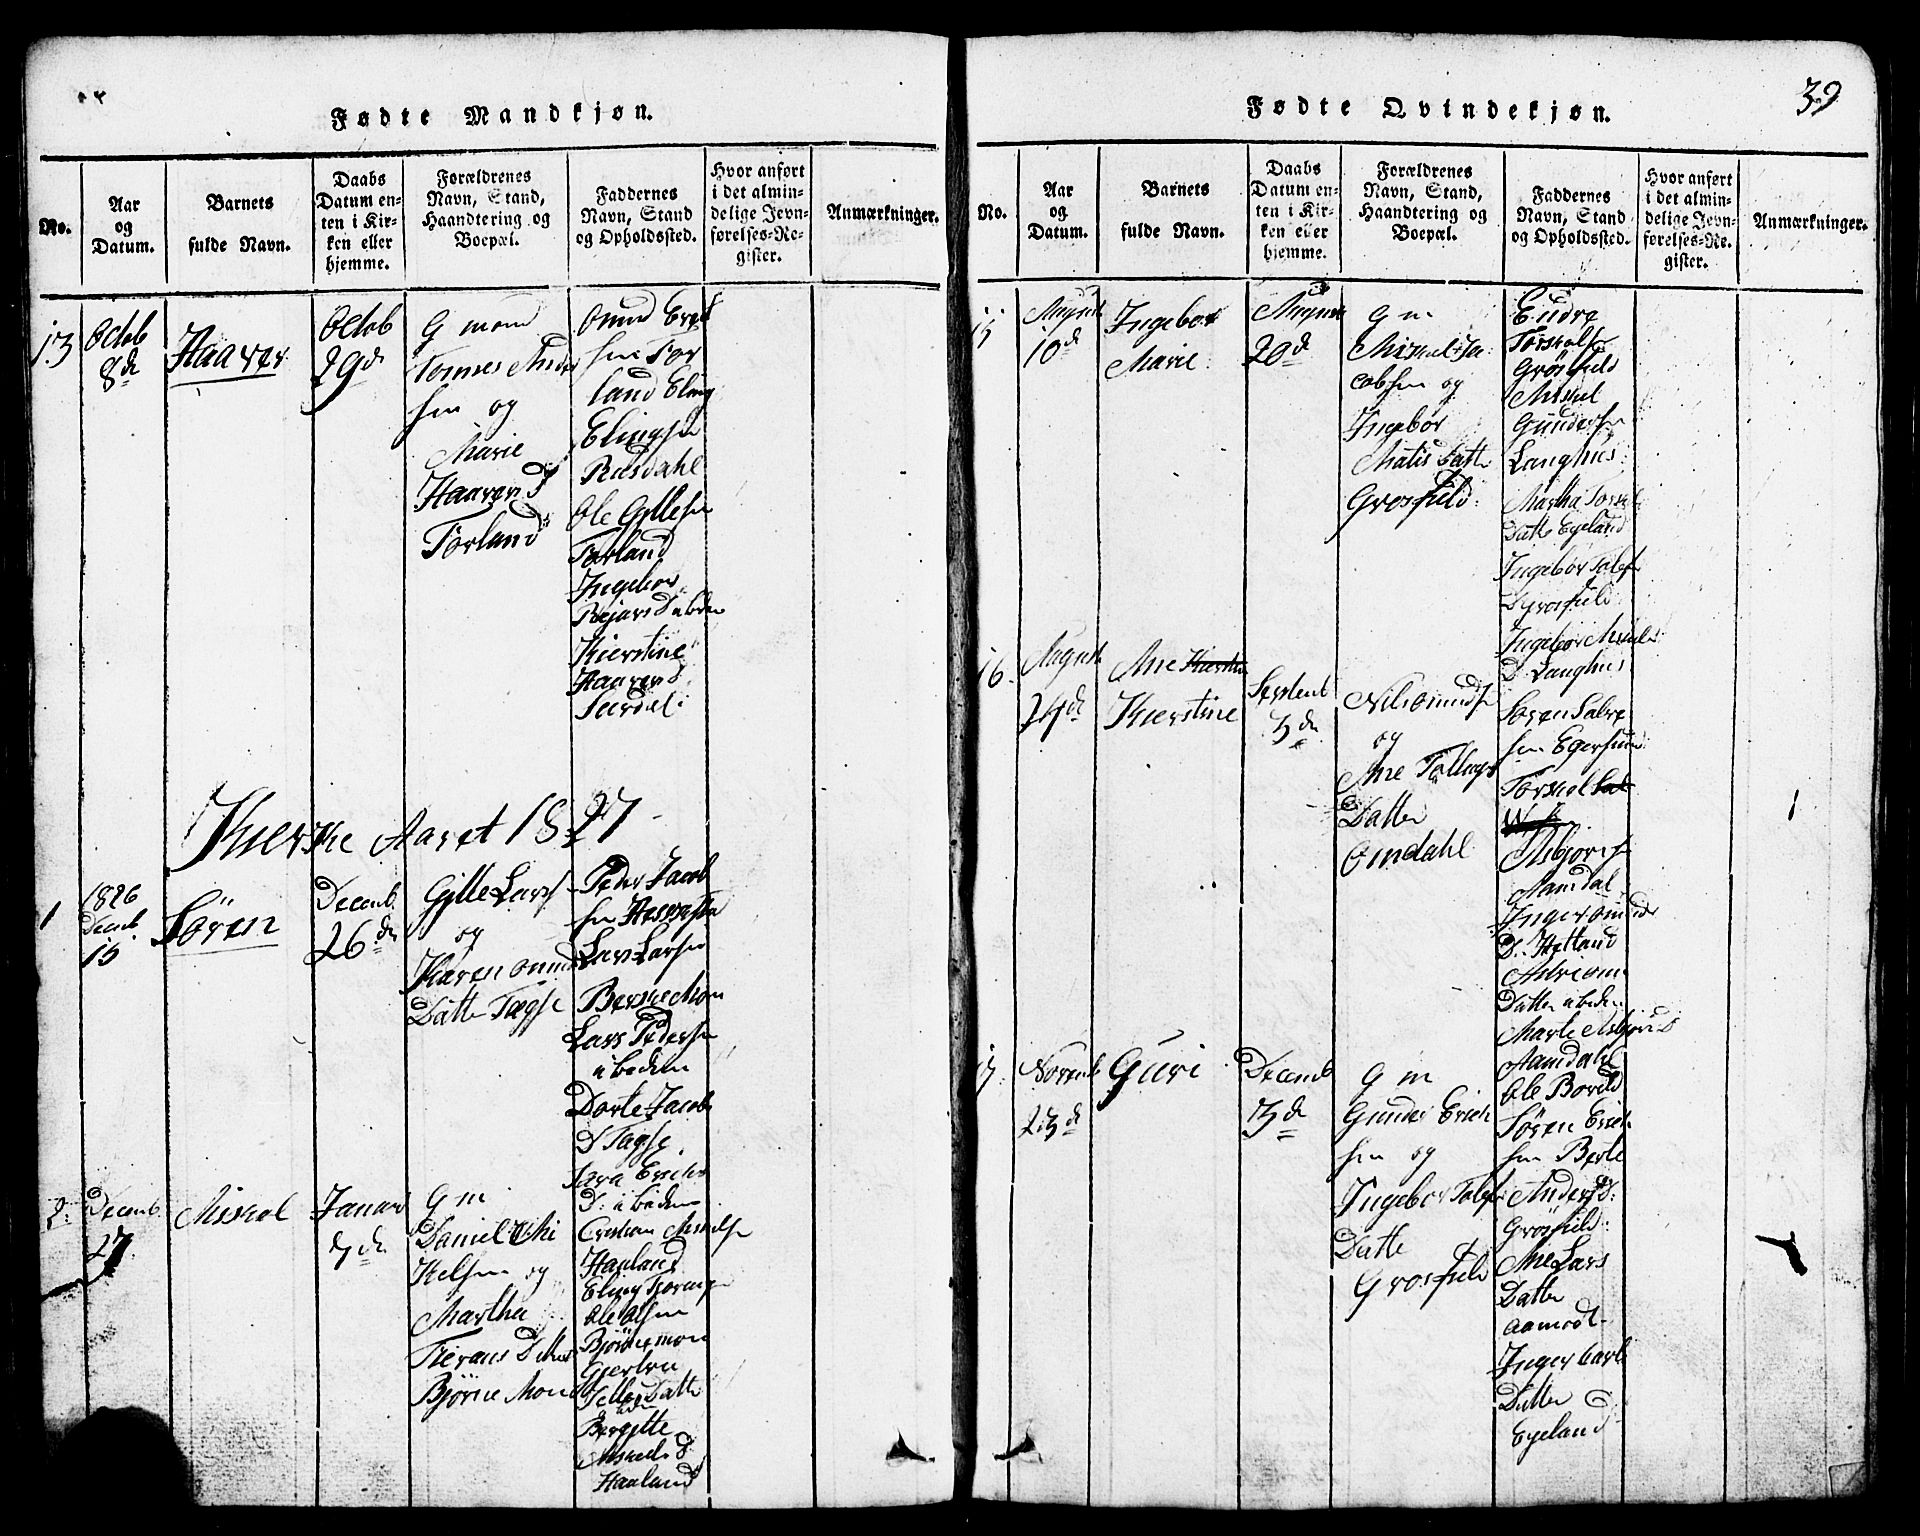 39
Fødte Mandkjøn.
No.
Aar
og
Datum.
Barnets
fulde Navn.
Daabs
Datum en-
ten i Kir-
ken eller
hjemme.
Forældrenes
Navn, Stand,
Haandtering og
Boepæl.
Faddernes
Navn, Stand
og Opholdssted.
Hvor anført
i det almin-
delige Jevn-
førelses-Re-
gister.
Anmærkninger.
13
Octob
8de
Haaver
Octob
29d
G mand
Tonnes Ander
sen og
Marie
Haavers D
Torland
Omund
sen Tor
land Eling
Elingsen
Rusdahl
Ole Gyllesen
Torland
Ingebor
ibiden
Kierstine
Haavers
Kierske Aaret 1827
1
1826
Decemb
15
Sören
Decemb
26de
Gjlle Lars
og
Karen Omund
Datter Tagse
Peder Jacob
sen
Lars Larsen
Lars Pedersen
ibidem
Dorte Jacobs
D Tagse
Sara Erichs
D: ibidem
2
Decemb
27
Aiskel
Januar
7de
G m
Daniel Mi
kelsen og
Martha
Datter
Bjørne Moen
Cristian
Haaland
Eling
Ole Olsen
Bjørnemon
Datter
Bergitte
Haaland
Fødte Qvindekjøn.
No.
Aar
og
Datum.
Barnets
fulde Navn.
Daabs
Datum en-
ten i Kir-
ken eller
hjemme.
Forældrenes
Navn, Stand,
Haandtering og
Boepæl.
Faddernes
Navn, Stand
og Opholdssted.
Hvor anført
i det almin-
delige Jevn-
førelses-Re-
gister.
Anmærkninger.
15
August
10de
Ingebor
Marie
August
20de
G m
Aiskel Ja
cobsen og
Ingebor
Matis Datter
Grosfield
Eudre
Torkels
Grösfield
Aiskel
Gundersen
Langhus
Martha Torkel
Datter Eyeland
Ingebor Tolef
D Grosfield
Ingebor Aiskels
D Langhus
16
August
24de
Ane
Kierstine
Septemb
3de
Nils Omundsen
og
Ane Tollags
Datter
Omdahl
Soren Salve
sen Egersund
Torkel
Asbjorns
Aamdal
Inger Omunds
D. Hetland
Datter ibidem
Marte Asbjorns
Aamdahl
17
Novemb
23de
Guri
Decemb
3de
G m
Gunder Erich
sen og
Ingebor Tolef
Datte
Grosfield
Ole
Sören Erich
sen Berte
Anders D:
Grösfield
Ane Lars
Datter
Aamodt
Inger Carl
Datter
Eyeland